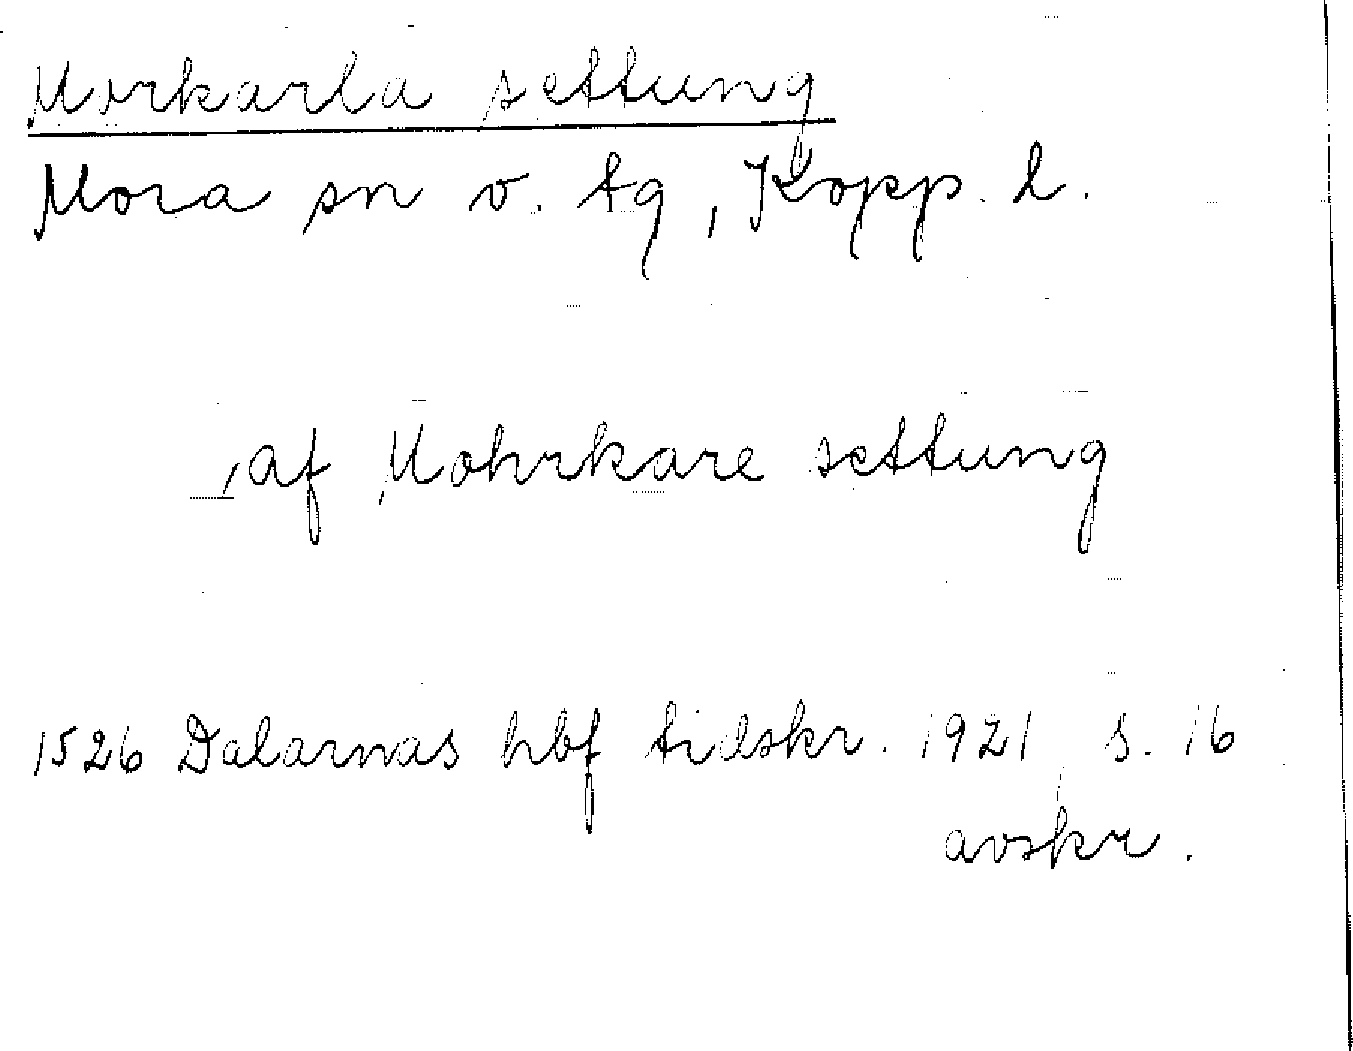 Morkarla settung
Mora sn o. tg, Kopp. l.
af Mohrkare settung
1526 Dalarnas hbf tidskr. 1921 s. 16
avskr.